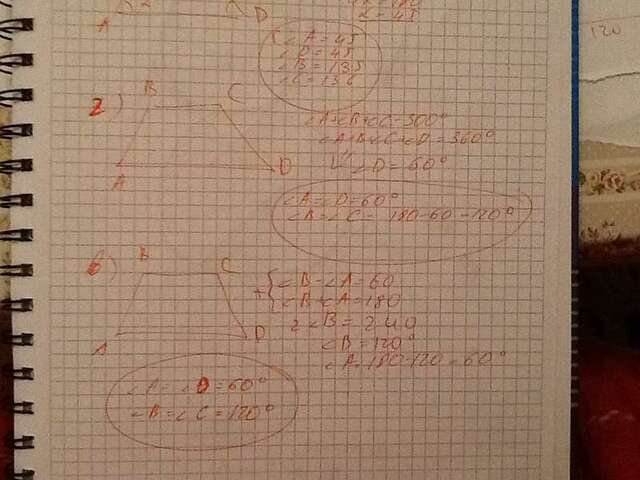 A 2 D
2 = 45
∠A = 45
∠D = 45
∠B = 135
120
2) B C
A D
∠A+∠B+∠C=300°
∠A+∠B+∠C+∠D=360°
∠D=60°
∠A=∠D=60°
∠B=∠C= 180-60=120°
б) B C
A D
+{∠B-∠A=60
∠B+∠A=180
2∠B=240
∠B=120°
∠A=180-120=60°
∠A=∠D=60°
∠B=∠C=120°